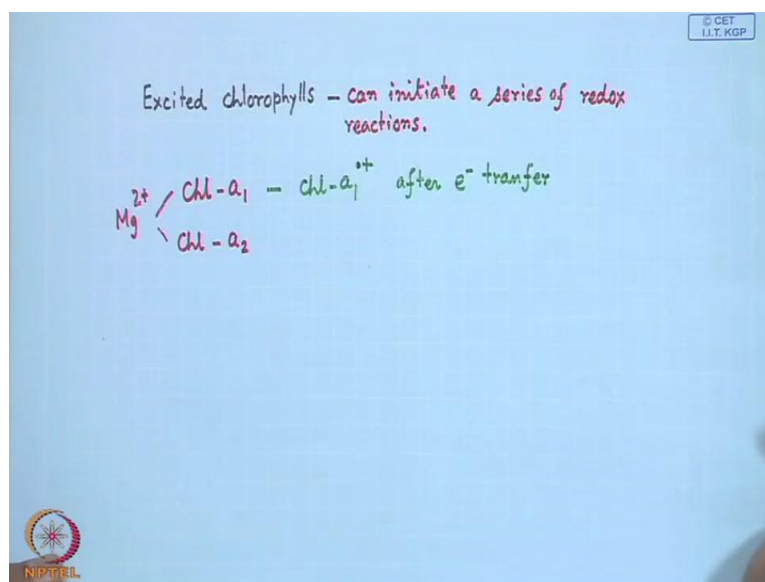 © CET
I.I.T. KGP
Excited chlorophylls – can initiate a series of redox
reactions.
Mg²⁺ Chl-a₁ – chl-a₁•⁺ after e⁻ tranfer
Chl-a₂
NPTEL